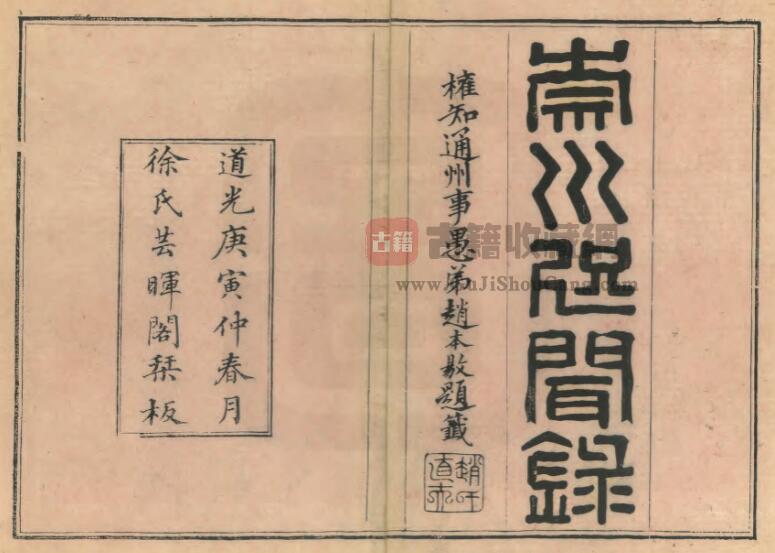 崇川咫聞錄
權知通州事愚弟趙本敭題籤
道光庚寅仲春月
徐氏芸暉閣栞板
古籍
古籍收藏網
www.GuJiShouCang.com